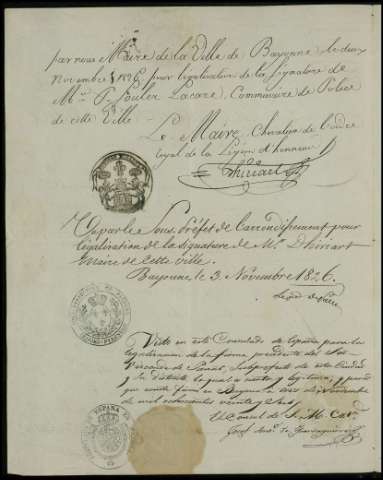 par nous Maire de la Ville de Bayonne le deux
Novembre 1826 pour légalisation de la signature de
Mr. P. Lacaze, Commissaire de Police
de cette Ville
Le Maire, Chevalier de l'ordre
royal de la Légion d'honneur
Dhiriart
Vu par le Sous Préfet de l'arrondissement pour
légalisation de la signature de Mr. Dhiriart
Maire de cette ville.
Bayonne le 3. Novembre 1826.
Visto en este Consulado de España para la
legalizacion de la firma precedente del Sor.
Vizconde de Subprefecto de esta Ciudad
y su distrito la qual es cierta y legitima, y para que
conste firmo en Bayona a tres de Noviembre
de mil ochocientos veinte y seis
El Consul de S. M. Cat.
ESPAÑA